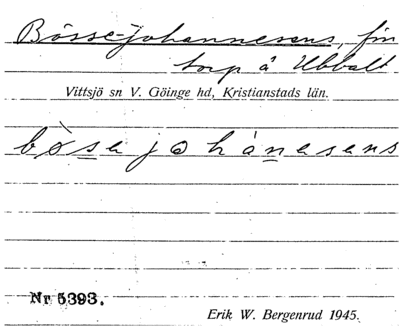 Bösse-johannesens, fm
torp å Ubbalt
Vittsjö sn V. Göinge hd, Kristianstads län.
bòsajohánesens
Nr 5393.
Erik W. Bergenrud 1945.